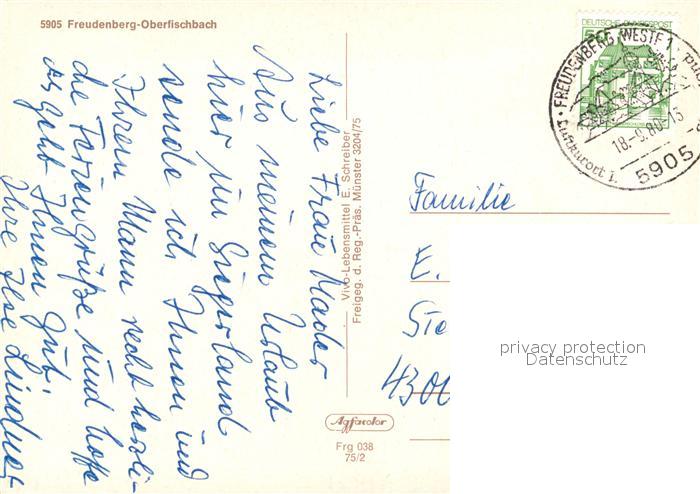 5905 Freudenberg-Oberfischbach
Liebe Frau
Aus meinem Urlaub
hier im Siegerland
sende ich Ihnen und
Ihrem Mann recht herzli-
che Feriengrüße und hoffe
es geht Ihnen gut
Ihre Ilse Lindner
Vivo-Lebensmittel E. Schreiber
Freigeg. d. Reg.-Präs. Münster 3204/75
Agfacolor
Frg 038
75/2
DEUTSCHE BUNDESPOST
FREUDENBERG, WESTF 1
18.-9.80-15
5905
Familie
E.
430
privacy protection
Datenschutz